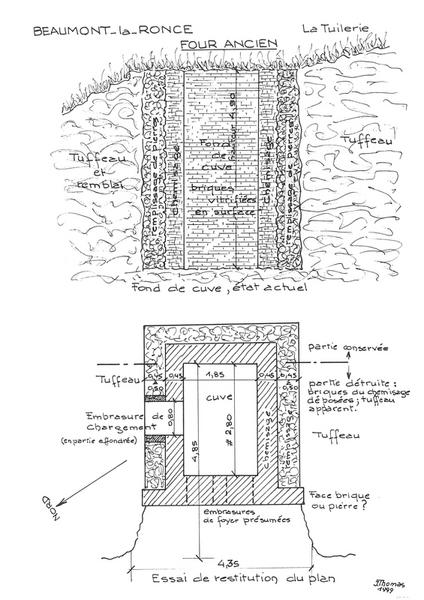 BEAUMONT-la-RONCE
La Tuilerie
FOUR ANCIEN
Tuffeau
et
remblai
chemisage
Fond
de
cuve
hauteur 4,90
briques
vitrifiées
en surface
chemisage
Tuffeau
Fond de cuve, état actuel
partie conservée
0,45
0,45
1,85
0,45
0,45
Tuffeau
0,50
0,50
partie détruite :
briques du chemisage
déposées ; tuffeau
apparent.
Embrasure de
chargement
(en partie effondrée)
0,80
cuve
# 2,80
4,85
chemisage
remplissage
Tuffeau
NORD
Face brique
ou pierre ?
embrasures
de foyer présumées
4,35
Essai de restitution du plan
JThomas
1999